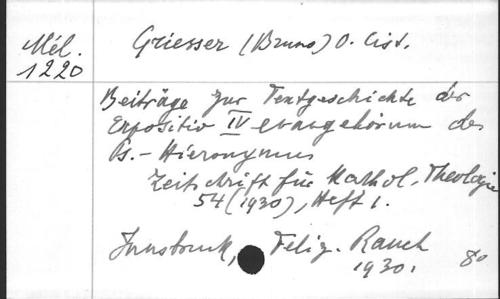 Mél.
1220
Griesser (Bruno) O. Cist.
Beiträge zur Textgeschichte der
Expositio IV evangeliorum des
Ps.-Hieronymus
Zeitschrift für Kathol. Theologie
54 (1930), Heft 1.
Innsbruck, Feliz. Rauch
1930. 8o